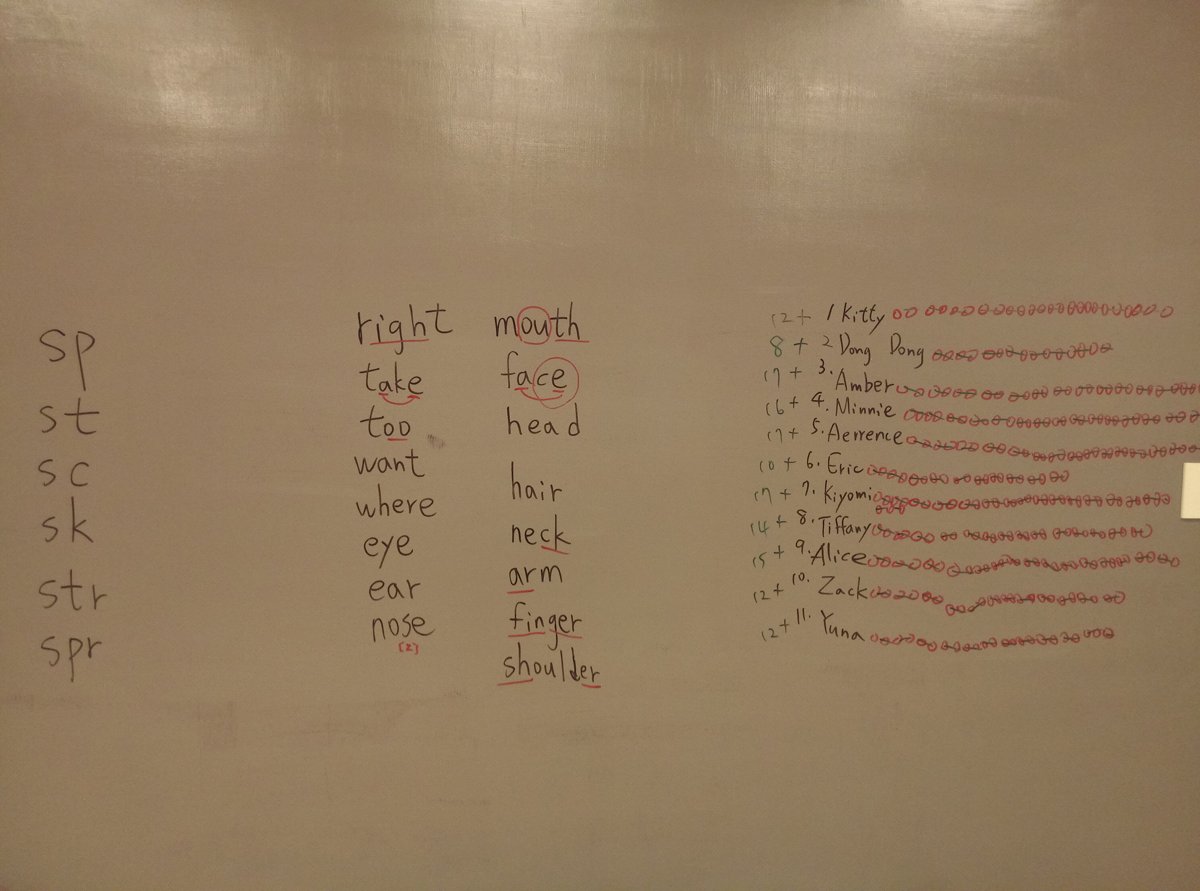 sp
st
sc
sk
str
spr
right
take
too
want
where
eye
ear
nose
[z]
mouth
face
head
hair
neck
arm
finger
shoulder
12+ 1 Kitty
8 + 2 Dong Dong
17 + 3. Amber
16 + 4. Minnie
17 + 5. Aerrence
10 + 6. Eric
17 + 7. Kiyomi
14 + 8. Tiffany
15 + 9. Alice
12 + 10. Zack
12 + 11. Yuna